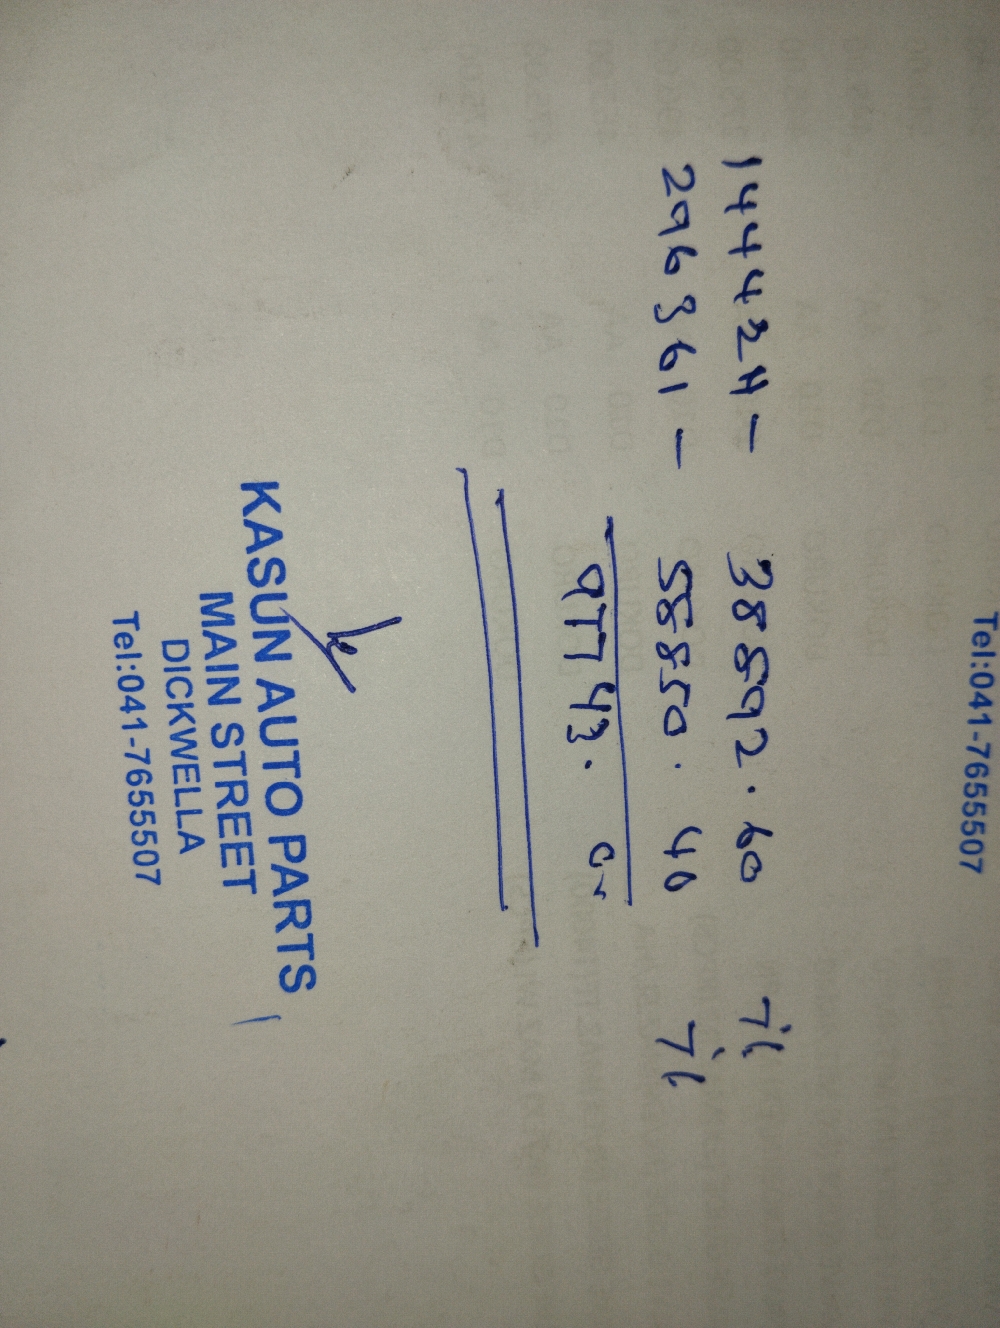 Tel:041-7655507
144424 - 38892.60 7%
296361 - 58850.40 7%
97743.00
KASUN AUTO PARTS
MAIN STREET
DICKWELLA
Tel:041-7655507